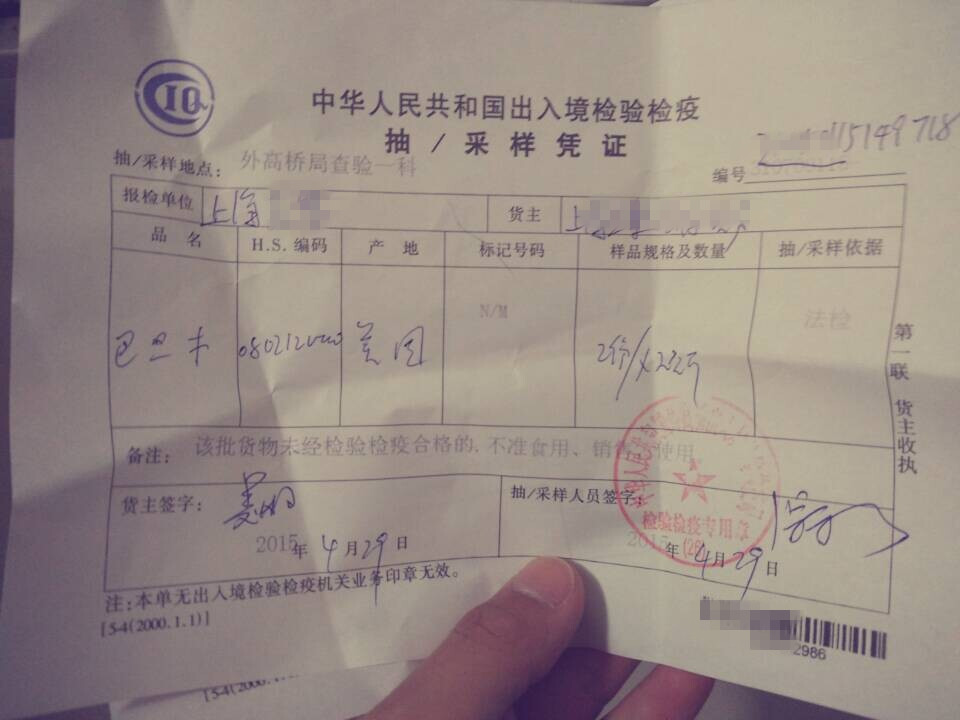 CIQ
中华人民共和国出入境检验检疫
抽/采样凭证
抽/采样地点: 外高桥局查验一科
编号 15149718
报检单位 上海 货主 上海
品名 H.S.编码 产地 标记号码 样品规格及数量 抽/采样依据
巴旦木 美国 N/M 法检
备注: 该批货物未经检验检疫合格的,不准食用、销售 使用
货主签字: 抽/采样人员签字:
2015年4月29日 2015年4月29日
检验检疫专用章
注:本单无出入境检验检疫机关业务印章无效。
[5-4(2000.1.1)]
2986
第一联 货主收执
[5-4(2000.1.1)]